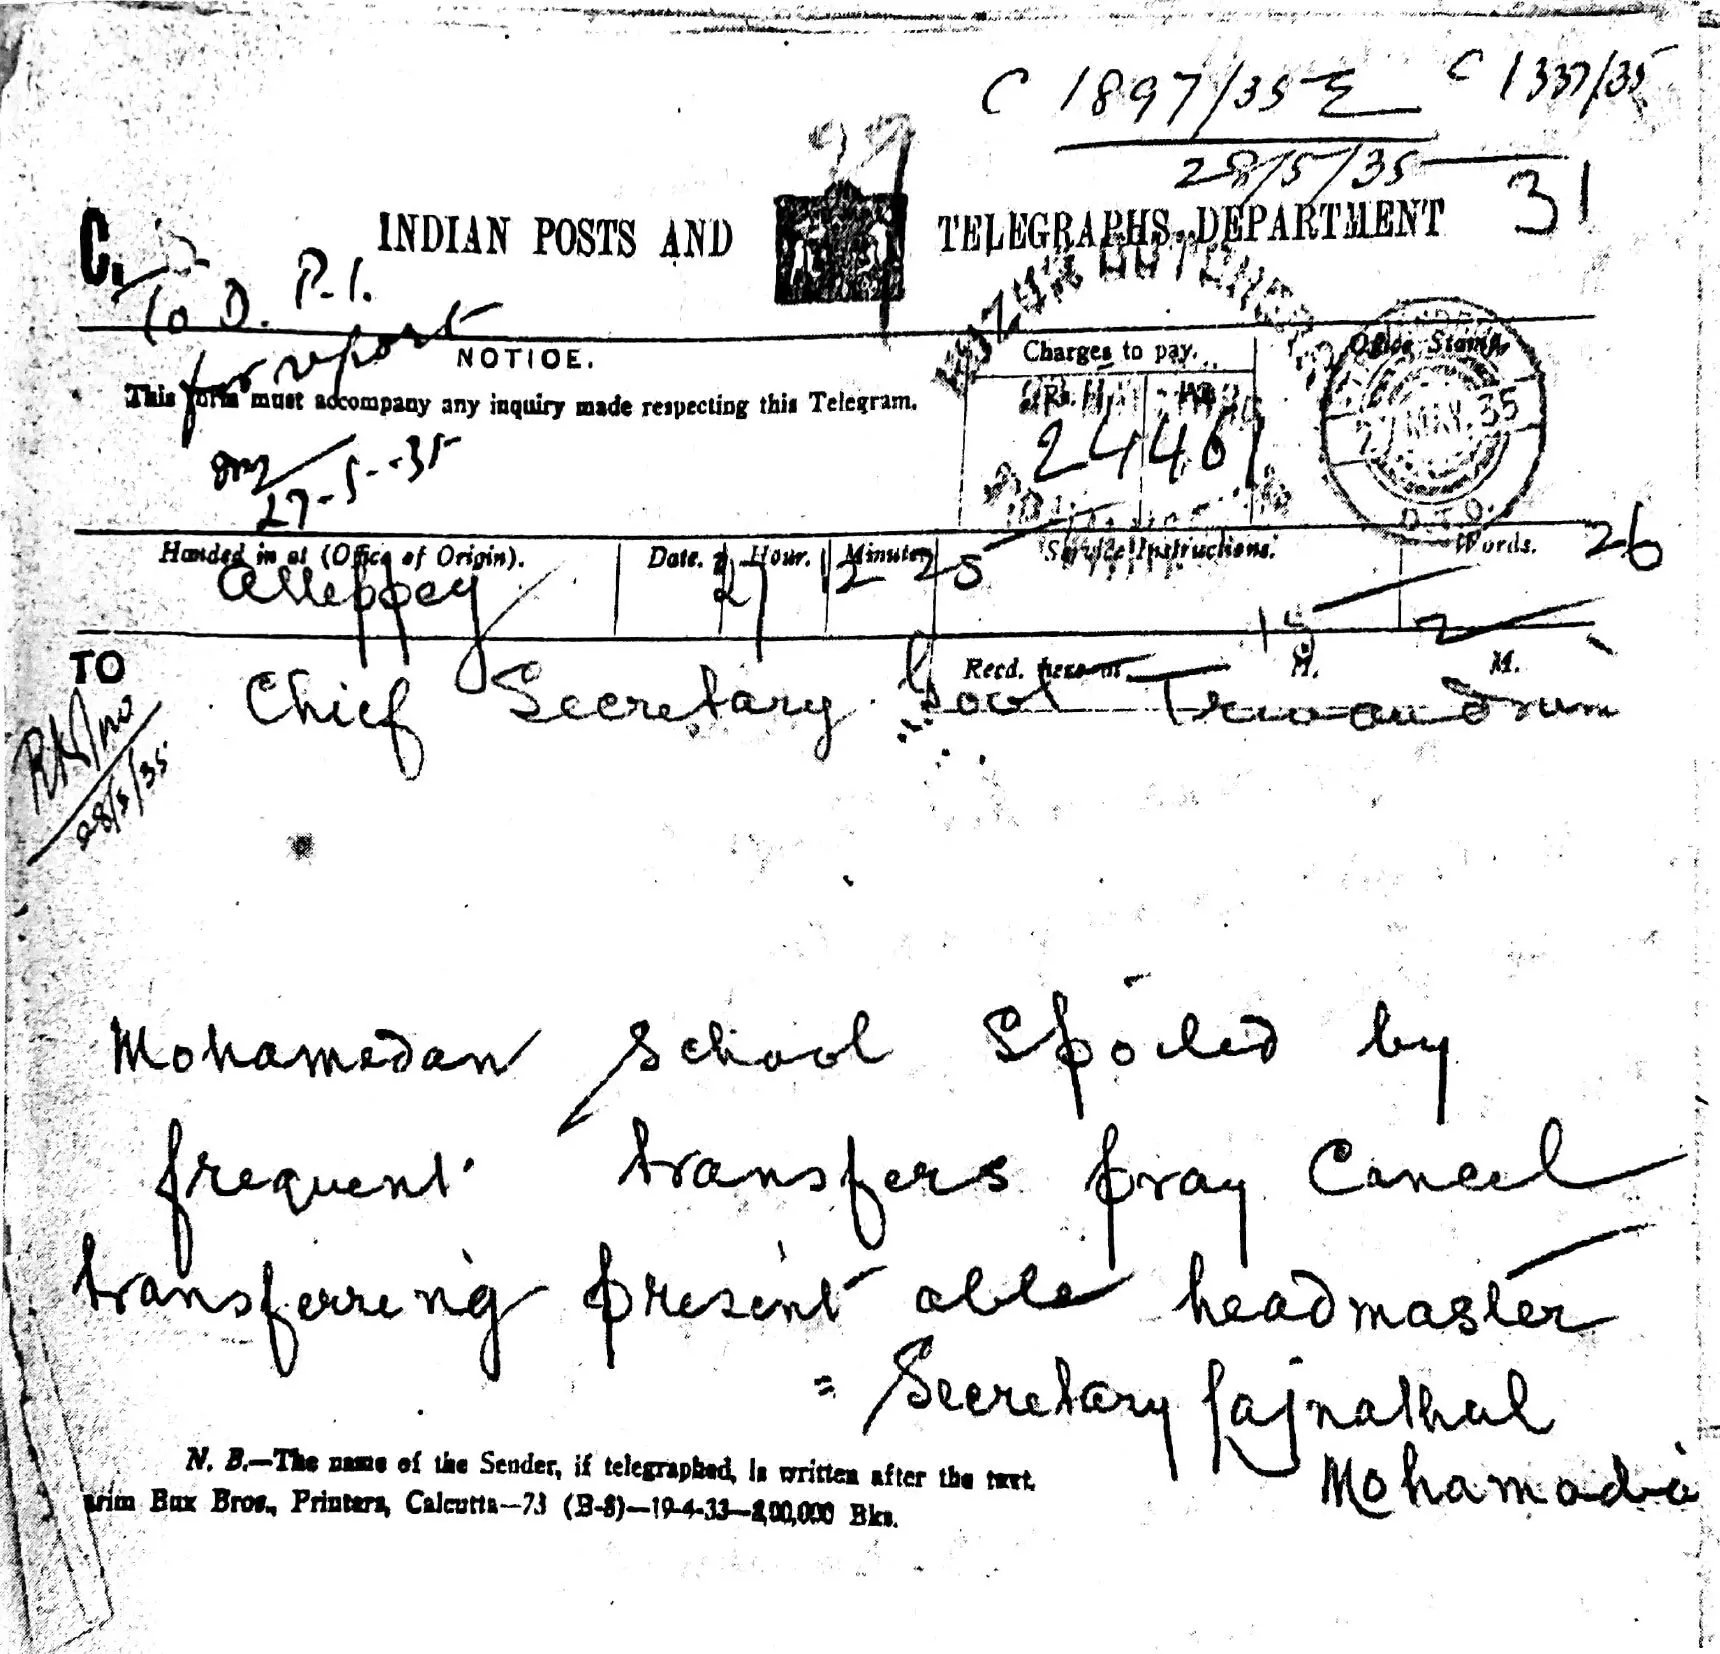 C 1897/35 C 1337/35
28/5/35
31
C.
INDIAN POSTS AND TELEGRAPHS DEPARTMENT
To D. P. I.
for report
27-5-35
NOTICE.
This form must accompany any inquiry made respecting this Telegram.
Charges to pay.
Rs. As.
24461
Office Stamp.
27 MAY. 35
Handed in at (Office of Origin). Date. Hour. Minute. Service Instructions. Words.
Alleppey 27 12 25 26
Recd. here at H. M.
15 2
TO
Chief Secretary Govt Trivandrum
28/5/35
Mohamedan School Spoiled by
frequent transfers pray Cancel
transferring present able headmaster
= Secretary Lajnathul
Mohamadia
N. B.—The name of the Sender, if telegraphed, is written after the text.
arim Bux Bros., Printers, Calcutta—73 (B-8)—19-4-33—2,00,000 Bks.